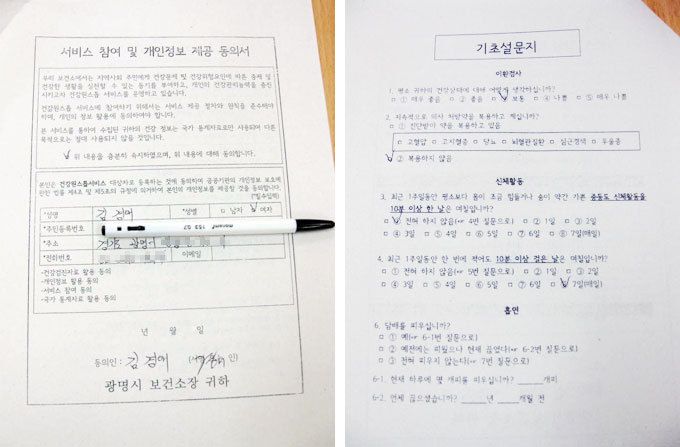 서비스 참여 및 개인정보 제공 동의서
우리 보건소에서는 지역사회 주민에게 건강문제 및 건강위험요인에 따른 중재 및
건강한 생활을 실천할 수 있는 동기를 부여하고, 개인의 건강관리능력을 증진
시키고자 건강원스톱 서비스를 운영하고 있습니다.
건강원스톱 서비스에 참여하기 위해서는 서비스 제공 절차와 원칙을 준수해야
하며, 개인의 정보 활용에 동의하여야 합니다.
본 서비스를 통하여 수집된 귀하의 건강 정보는 국가 통계자료로만 사용되며 다른
목적으로는 절대 사용되지 않을 것입니다.
위 내용을 충분히 숙지하였으며, 위 내용에 대해 동의합니다.
본인은 건강원스톱서비스 대상자로 등록하는 것에 동의하며 공공기관의 개인정보 보호에
관한 법률 제4조 및 제5조의 규정에 의거하여 본인의 개인정보를 제공할 것을 동의합니다.
(*필수입력)
*성명 김 경애 *성별 □ 남자 □ 여자
*주민등록번호
*주소 경기 광명
*전화번호 이메일
-건강검진자료 활용 동의
-개인정보 활용 동의
-서비스 참여 동의
-국가 통계자료 활용 동의
년 월 일
동의인 : 김 경애 인)
광명시 보건소장 귀하
기초설문지
이환검사
1. 평소 귀하의 건강상태에 대해 어떻게 생각하십니까?
□ ① 매우 좋음 □ ② 좋음 □ ③ 보통 □ ④ 나쁨 □ ⑤ 매우 나쁨
2. 지속적으로 의사 처방약을 복용하고 계십니까?
□ ① 진단받아 약을 복용하고 있음
□ 고혈압 □ 고지혈증 □ 당뇨 □ 뇌혈관질환 □ 심근경색 □ 우울증
□ ② 복용하지 않음
신체활동
3. 최근 1주일동안 평소보다 몸이 조금 힘들거나 숨이 약간 가쁜 중등도 신체활동을
10분 이상 한 날은 며칠입니까?
□ ① 전혀 하지 않음(☞ 4번 질문으로) □ ② 1일 □ ③ 2일
□ ④ 3일 □ ⑤ 4일 □ ⑥ 5일 □ ⑦ 6일 □ ⑧ 7일(매일)
4. 최근 1주일동안 한 번에 적어도 10분 이상 걸은 날은 며칠입니까?
□ ① 전혀 하지 않음(☞ 5번 질문으로) □ ② 1일 □ ③ 2일
□ ④ 3일 □ ⑤ 4일 □ ⑥ 5일 □ ⑦ 6일 □ ⑧ 7일(매일)
흡연
6. 담배를 피우십니까?
□ ① 예(☞ 6-1번 질문으로)
□ ② 예전에는 피웠으나 현재 끊었다(☞ 6-2번 질문으로)
□ ③ 전혀 피우지 않는다(☞ 7번 질문으로)
6-1. 현재 하루에 몇 개피를 피우십니까? ______개피
6-2. 언제 끊으셨습니까? ______년 ______개월 전